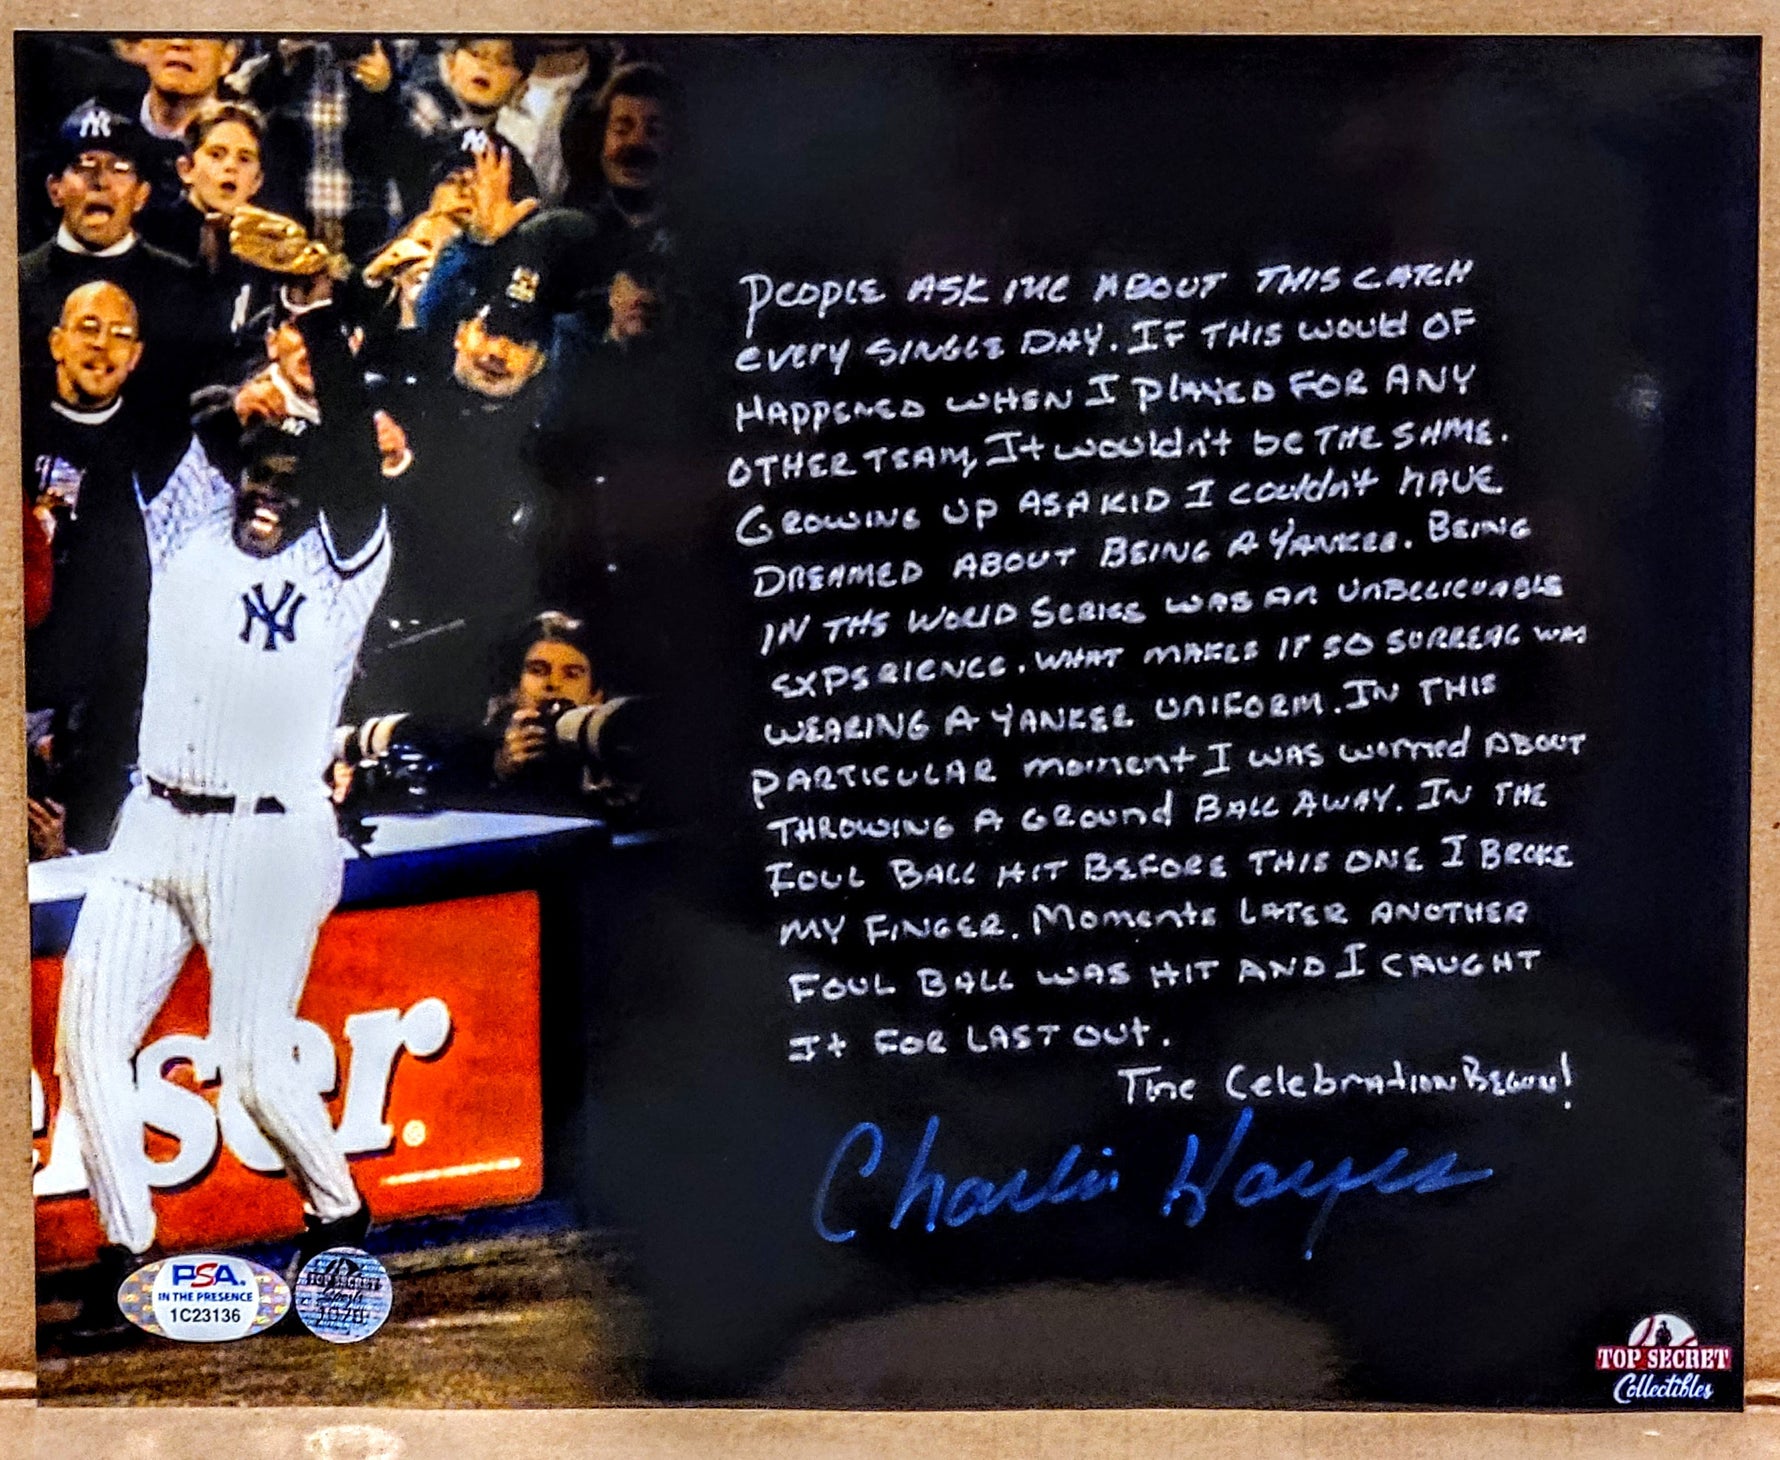 PEOPLE ASK ME ABOUT THIS CATCH
EVERY SINGLE DAY. IF THIS WOULD OF
HAPPENED WHEN I PLAYED FOR ANY
OTHER TEAM, It wouldn't be THE SAME.
GROWING UP AS A KID I couldn't HAVE
DREAMED ABOUT BEING A YANKEE. BEING
IN THE WORLD SERIES WAS AN UNBELIEVABLE
EXPERIENCE. WHAT MAKES IT SO SURREAL WAS
WEARING A YANKEE UNIFORM. IN THIS
PARTICULAR moment I WAS worried ABOUT
THROWING A GROUND BALL AWAY. IN THE
FOUL BALL HIT BEFORE THIS ONE I BROKE
MY FINGER. Moments LATER ANOTHER
FOUL BALL WAS HIT AND I CAUGHT
It FOR LAST OUT.
The Celebration BEGUN!
Charlie Hayes
NY
NY
NY
iser.
PSA.
IN THE PRESENCE
1C23136
TOP SECRET
Sports
TOP SECRET
Collectibles